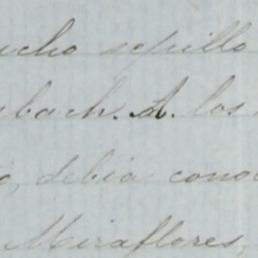 ucho cepillo
nbach. A. los
o, debia cono
Miraflores,